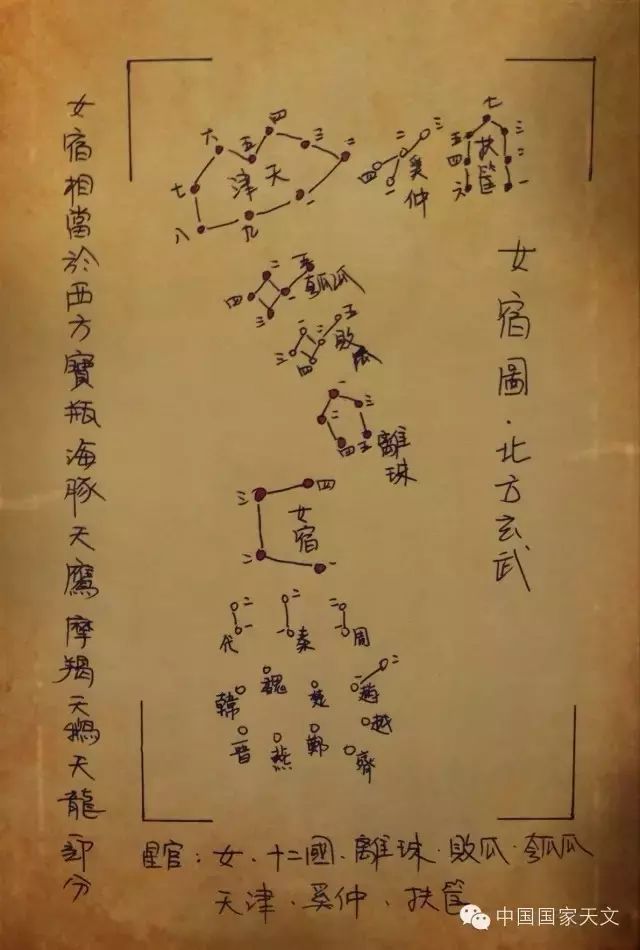 女宿圖·北方玄武
七
五 三
四 二
六 一
扶筐
三
二
四 一
奚仲
四
六 五 三 二
七 一
八 九
天津
五
二
四 一
三
瓠瓜
五
一 二
三 四
敗瓜
一
二 三
四 五
離珠
三 四
二 一
女宿
二 二 二
一 一 一
代 秦 周
二
韓 魏 楚 一 趙
越
晉 燕 鄭 齊
女宿相當於西方寶瓶海豚天鷹摩羯天鵝天龍部分
星官：女、十二國、離珠、敗瓜、瓠瓜
天津、奚仲、扶筐
中国国家天文